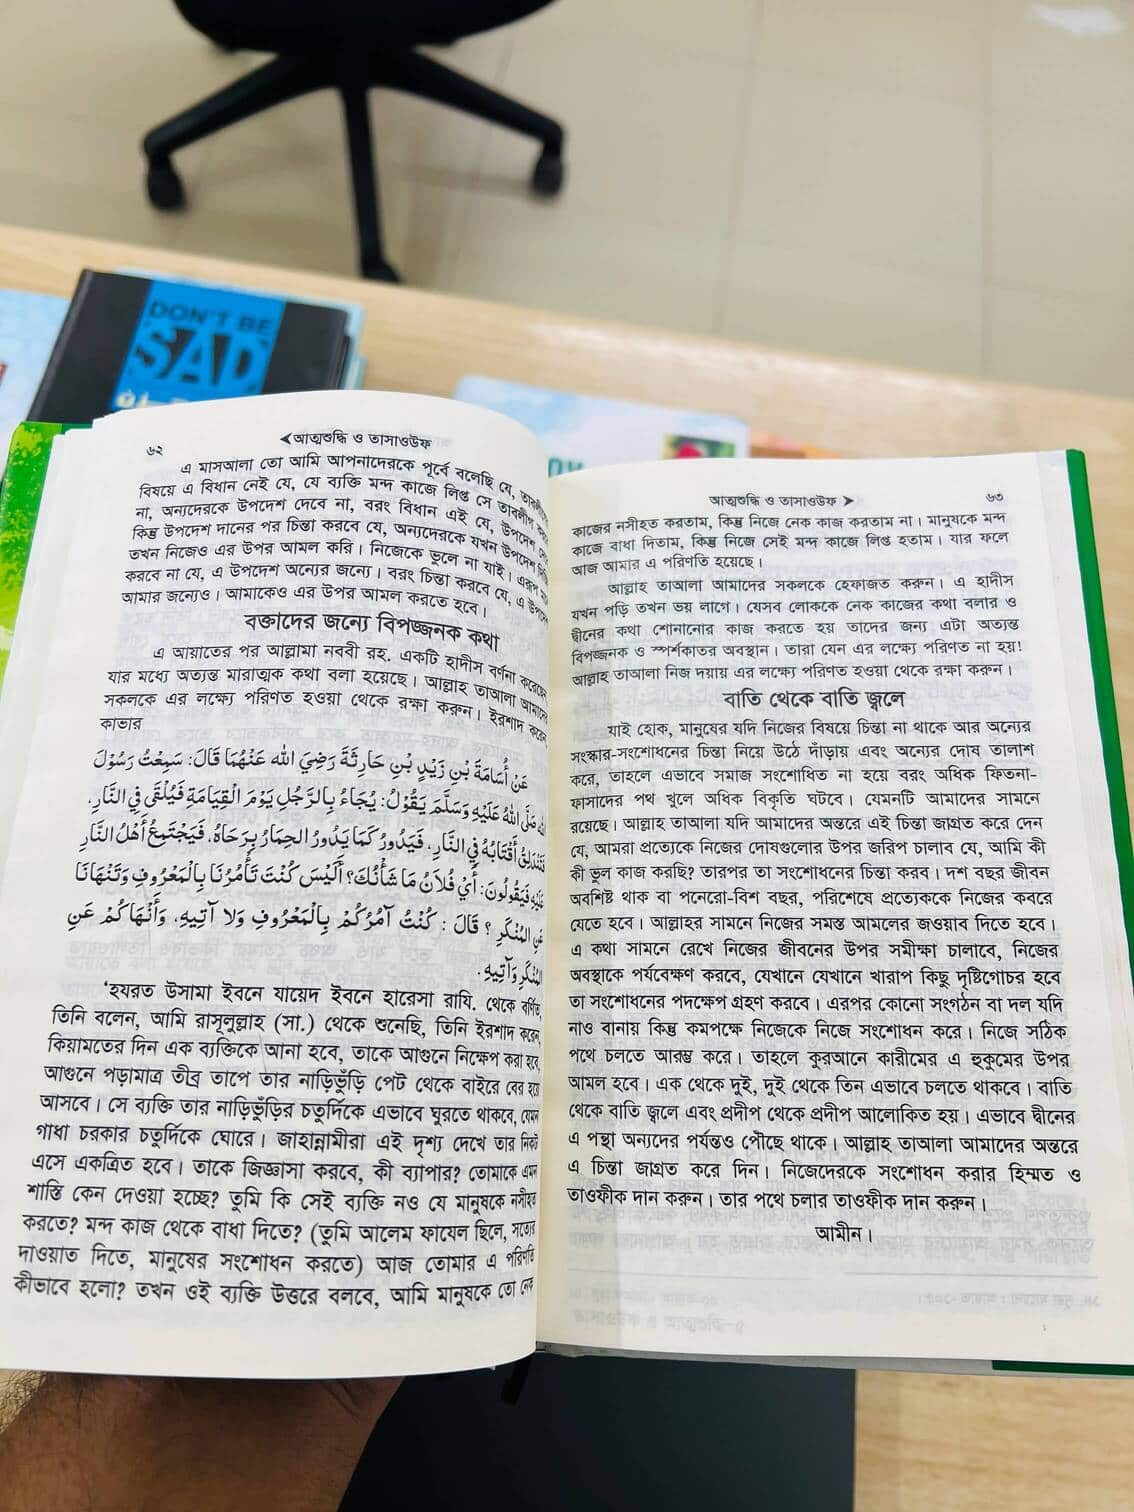 DON'T BE
SAD
৬২
⮜আত্মশুদ্ধি ও তাসাওউফ
এ মাসআলা তো আমি আপনাদেরকে পূর্বে বলেছি যে,
বিষয়ে এ বিধান নেই যে, যে ব্যক্তি মন্দ কাজে লিপ্ত সে তাবলীগ
না, অন্যদেরকে উপদেশ দেবে না, বরং বিধান এই যে, উপদেশ
কিন্তু উপদেশ দানের পর চিন্তা করবে যে, অন্যদেরকে যখন উপদেশ
তখন নিজেও এর উপর আমল করি। নিজেকে ভুলে না যাই। এরূপ
করবে না যে, এ উপদেশ অন্যের জন্যে। বরং চিন্তা করবে যে, এ উপদেশ
আমার জন্যেও। আমাকেও এর উপর আমল করতে হবে।
বক্তাদের জন্যে বিপজ্জনক কথা
এ আয়াতের পর আল্লামা নববী রহ. একটি হাদীস বর্ণনা করেছেন
যার মধ্যে অত্যন্ত মারাত্মক কথা বলা হয়েছে। আল্লাহ তাআলা আমাদের
সকলকে এর লক্ষ্যে পরিণত হওয়া থেকে রক্ষা করুন। ইরশাদ করেন,
কাভার
عَنْ أُسَامَةَ بْنِ زَيْدِ بْنِ حَارِثَةَ رَضِيَ الله عَنْهُمَا قَالَ: سَمِعْتُ رَسُوْلَ
اللهِ صَلَّى اللهُ عَلَيْهِ وَسَلَّمَ يَقُوْلُ: يُجَاءُ بِالرَّجُلِ يَوْمَ الْقِيَامَةِ فَيُلْقَى فِي النَّارِ،
فَتَنْدَلِقُ أَقْتَابُهُ فِي النَّارِ، فَيَدُوْرُ كَمَا يَدُوْرُ الْحِمَارُ بِرَحَاهُ، فَيَجْتَمِعُ أَهْلُ النَّارِ
عَلَيْهِ فَيَقُوْلُوْنَ: أَيْ فُلَانُ مَا شَأْنُكَ؟ أَلَيْسَ كُنْتَ تَأْمُرُنَا بِالْمَعْرُوْفِ وَتَنْهَانَا
عَنِ الْمُنْكَرِ؟ قَالَ: كُنْتُ آمُرُكُمْ بِالْمَعْرُوْفِ وَلَا آتِيْهِ، وَأَنْهَاكُمْ عَنِ
الْمُنْكَرِ وَآتِيْهِ.
‘হযরত উসামা ইবনে যায়েদ ইবনে হারেসা রাযি. থেকে বর্ণিত,
তিনি বলেন, আমি রাসূলুল্লাহ (সা.) থেকে শুনেছি, তিনি ইরশাদ করেন,
কিয়ামতের দিন এক ব্যক্তিকে আনা হবে, তাকে আগুনে নিক্ষেপ করা হবে,
আগুনে পড়ামাত্র তীব্র তাপে তার নাড়িভুঁড়ি পেট থেকে বাইরে বের হয়ে
আসবে। সে ব্যক্তি তার নাড়িভুঁড়ির চতুর্দিকে এভাবে ঘুরতে থাকবে, যেমন
গাধা চরকার চতুর্দিকে ঘোরে। জাহান্নামীরা এই দৃশ্য দেখে তার নিকট
এসে একত্রিত হবে। তাকে জিজ্ঞাসা করবে, কী ব্যাপার? তোমাকে এমন
শাস্তি কেন দেওয়া হচ্ছে? তুমি কি সেই ব্যক্তি নও যে মানুষকে নসীহত
করতে? মন্দ কাজ থেকে বাধা দিতে? (তুমি আলেম ফাযেল ছিলে, সত্যের
দাওয়াত দিতে, মানুষের সংশোধন করতে) আজ তোমার এ পরিণতি
কীভাবে হলো? তখন ওই ব্যক্তি উত্তরে বলবে, আমি মানুষকে তো নেক
আত্মশুদ্ধি ও তাসাওউফ ⮞
৬৩
কাজের নসীহত করতাম, কিন্তু নিজে নেক কাজ করতাম না। মানুষকে মন্দ
কাজে বাধা দিতাম, কিন্তু নিজে সেই মন্দ কাজে লিপ্ত হতাম। যার ফলে
আজ আমার এ পরিণতি হয়েছে।
আল্লাহ তাআলা আমাদের সকলকে হেফাজত করুন। এ হাদীস
যখন পড়ি তখন ভয় লাগে। যেসব লোককে নেক কাজের কথা বলার ও
দ্বীনের কথা শোনানোর কাজ করতে হয় তাদের জন্য এটা অত্যন্ত
বিপজ্জনক ও স্পর্শকাতর অবস্থান। তারা যেন এর লক্ষ্যে পরিণত না হয়!
আল্লাহ তাআলা নিজ দয়ায় এর লক্ষ্যে পরিণত হওয়া থেকে রক্ষা করুন।
বাতি থেকে বাতি জ্বলে
যাই হোক, মানুষের যদি নিজের বিষয়ে চিন্তা না থাকে আর অন্যের
সংস্কার-সংশোধনের চিন্তা নিয়ে উঠে দাঁড়ায় এবং অন্যের দোষ তালাশ
করে, তাহলে এভাবে সমাজ সংশোধিত না হয়ে বরং অধিক ফিতনা-
ফাসাদের পথ খুলে অধিক বিকৃতি ঘটবে। যেমনটি আমাদের সামনে
রয়েছে। আল্লাহ তাআলা যদি আমাদের অন্তরে এই চিন্তা জাগ্রত করে দেন
যে, আমরা প্রত্যেকে নিজের দোষগুলোর উপর জরিপ চালাব যে, আমি কী
কী ভুল কাজ করছি? তারপর তা সংশোধনের চিন্তা করব। দশ বছর জীবন
অবশিষ্ট থাক বা পনেরো-বিশ বছর, পরিশেষে প্রত্যেককে নিজের কবরে
যেতে হবে। আল্লাহর সামনে নিজের সমস্ত আমলের জওয়াব দিতে হবে।
এ কথা সামনে রেখে নিজের জীবনের উপর সমীক্ষা চালাবে, নিজের
অবস্থাকে পর্যবেক্ষণ করবে, যেখানে যেখানে খারাপ কিছু দৃষ্টিগোচর হবে
তা সংশোধনের পদক্ষেপ গ্রহণ করবে। এরপর কোনো সংগঠন বা দল যদি
নাও বানায় কিন্তু কমপক্ষে নিজেকে নিজে সংশোধন করে। নিজে সঠিক
পথে চলতে আরম্ভ করে। তাহলে কুরআনে কারীমের এ হুকুমের উপর
আমল হবে। এক থেকে দুই, দুই থেকে তিন এভাবে চলতে থাকবে। বাতি
থেকে বাতি জ্বলে এবং প্রদীপ থেকে প্রদীপ আলোকিত হয়। এভাবে দ্বীনের
এ পন্থা অন্যদের পর্যন্তও পৌঁছে থাকে। আল্লাহ তাআলা আমাদের অন্তরে
এ চিন্তা জাগ্রত করে দিন। নিজেদেরকে সংশোধন করার হিম্মত ও
তাওফীক দান করুন। তার পথে চলার তাওফীক দান করুন।
আমীন।